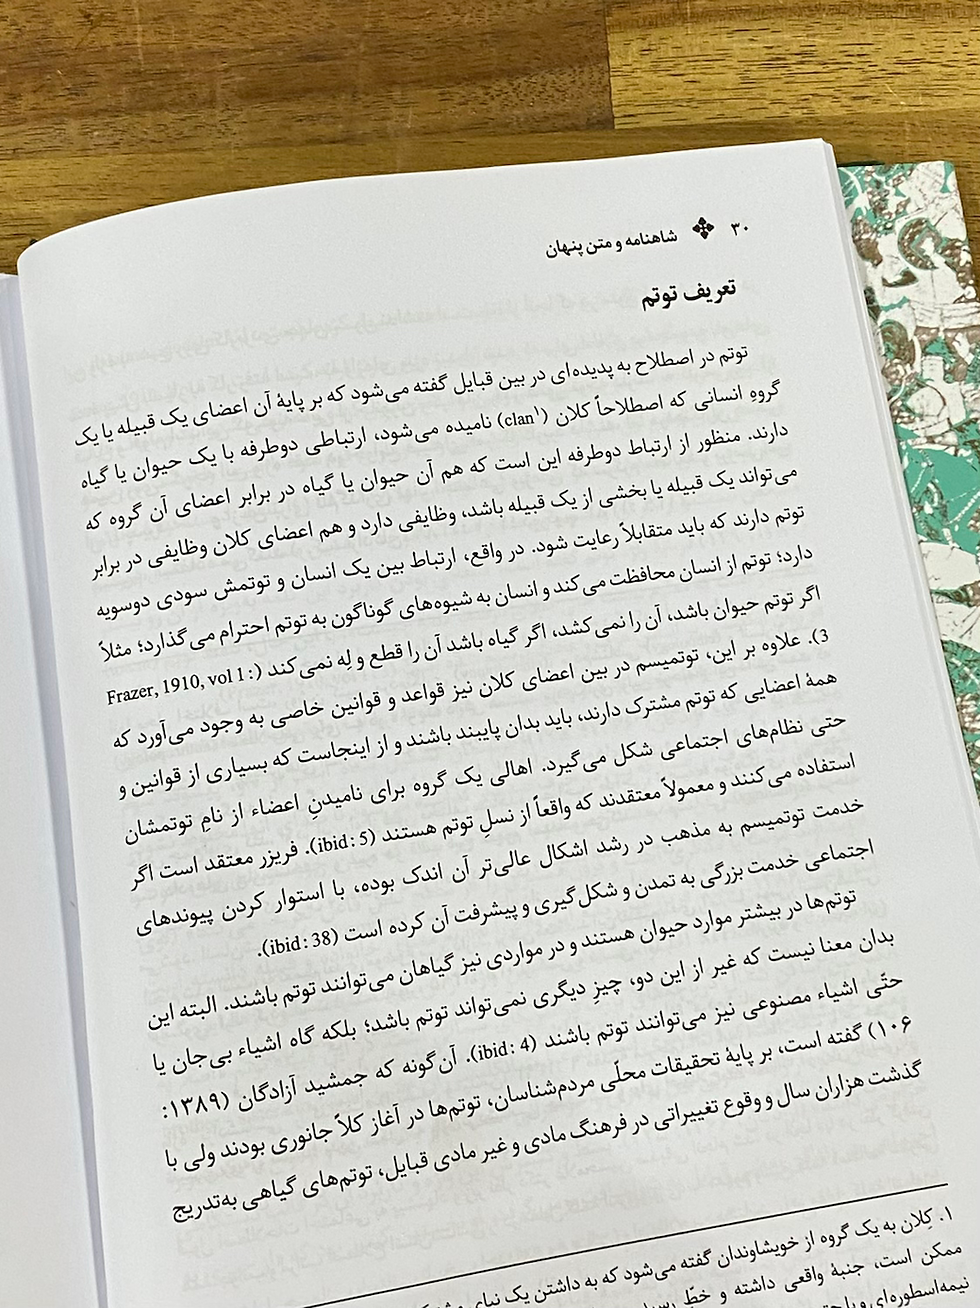 ۳۰ شاهنامه و متن پنهان
تعریف توتم
توتم در اصطلاح به پدیده‌ای در بین قبایل گفته می‌شود که بر پایهٔ آن اعضای یک قبیله یا یک
گروهِ انسانی که اصطلاحاً کلان (clan۱) نامیده می‌شود، ارتباطی دوطرفه با یک حیوان یا گیاه
دارند. منظور از ارتباط دوطرفه این است که هم آن حیوان یا گیاه در برابر اعضای آن گروه که
می‌تواند یک قبیله یا بخشی از یک قبیله باشد، وظایفی دارد و هم اعضای کلان وظایفی در برابر
توتم دارند که باید متقابلاً رعایت شود. در واقع، ارتباط بین یک انسان و توتمش سودی دوسویه
دارد؛ توتم از انسان محافظت می‌کند و انسان به شیوه‌های گوناگون به توتم احترام می‌گذارد؛ مثلاً
اگر توتم حیوان باشد، آن را نمی‌کشد، اگر گیاه باشد آن را قطع و لِه نمی‌کند (Frazer, 1910, vol 1:
3). علاوه بر این، توتمیسم در بین اعضای کلان نیز قواعد و قوانین خاصی به وجود می‌آورد که
همهٔ اعضایی که توتم مشترک دارند، باید بدان پایبند باشند و از اینجاست که بسیاری از قوانین و
حتی نظام‌های اجتماعی شکل می‌گیرد. اهالی یک گروه برای نامیدنِ اعضاء از نامِ توتمشان
استفاده می‌کنند و معمولاً معتقدند که واقعاً از نسلِ توتم هستند (ibid: 5). فریزر معتقد است اگر
خدمت توتمیسم به مذهب در رشد اشکال عالی‌تر آن اندک بوده، با استوار کردن پیوندهای
اجتماعی خدمت بزرگی به تمدن و شکل‌گیری و پیشرفت آن کرده است (ibid: 38).
توتم‌ها در بیشتر موارد حیوان هستند و در مواردی نیز گیاهان می‌توانند توتم باشند. البته این
بدان معنا نیست که غیر از این دو، چیزِ دیگری نمی‌تواند توتم باشد؛ بلکه گاه اشیاء بی‌جان یا
حتّی اشیاء مصنوعی نیز می‌توانند توتم باشند (ibid: 4). آن‌گونه که جمشید آزادگان (۱۳۸۹:
۱۰۶) گفته است، بر پایهٔ تحقیقات محلّی مردم‌شناسان، توتم‌ها در آغاز کلاً جانوری بودند ولی با
گذشت هزاران سال و وقوع تغییراتی در فرهنگ مادی و غیر مادی قبایل، توتم‌های گیاهی به‌تدریج
۱. کِلان به یک گروه از خویشاوندان گفته می‌شود که به داشتن یک نیای
ممکن است، جنبهٔ واقعی داشته و خطِّ
نیمه‌اسطوره‌ای و یا